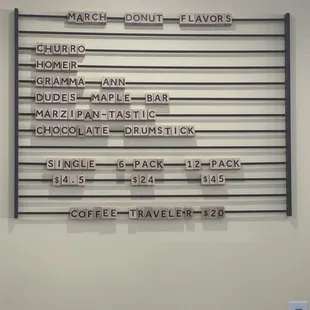 MARCH DONUT FLAVORS
CHURRO
HOMER
GRAMMA ANN
DUDES MAPLE BAR
MARZIPAN-TASTIC
CHOCOLATE DRUMSTICK
SINGLE 6 PACK 12 PACK
$4.5 $24 $45
COFFEE TRAVELER $20